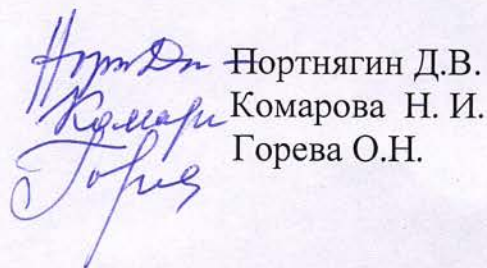 Портнягин Д.В.
Комарова Н. И.
Горева О.Н.